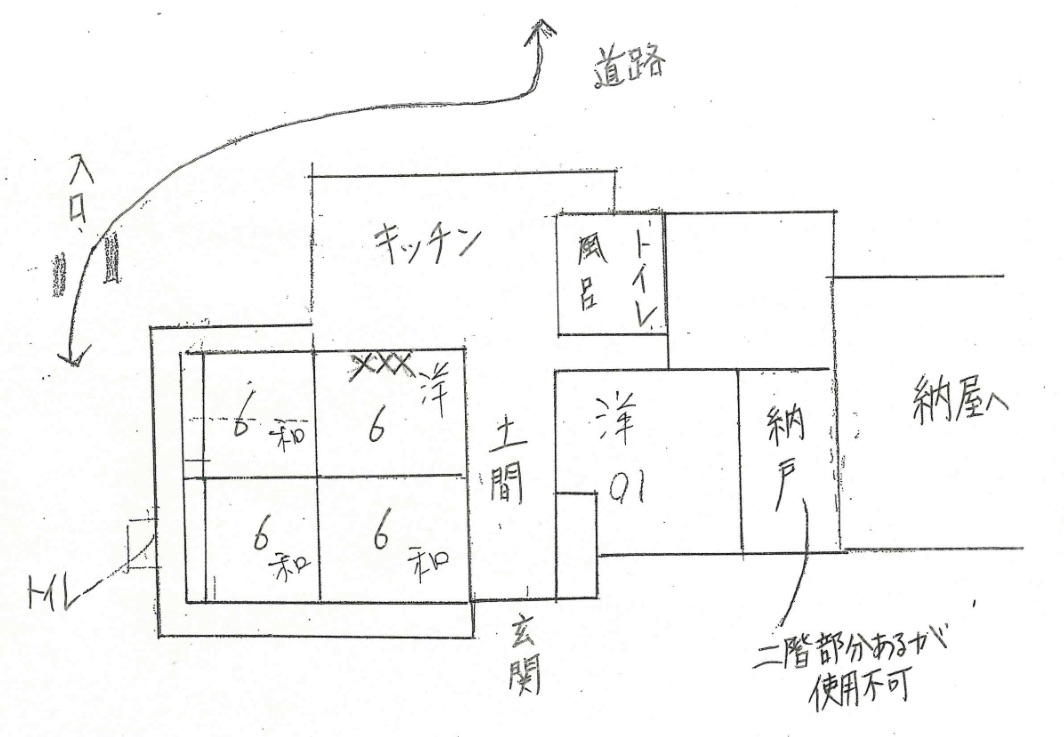 道路
入口
キッチン
風呂
トイレ
納屋へ
6 和
6 洋
土間
洋
01
納戸
6 和
6 和
トイレ
玄関
二階部分あるが
使用不可